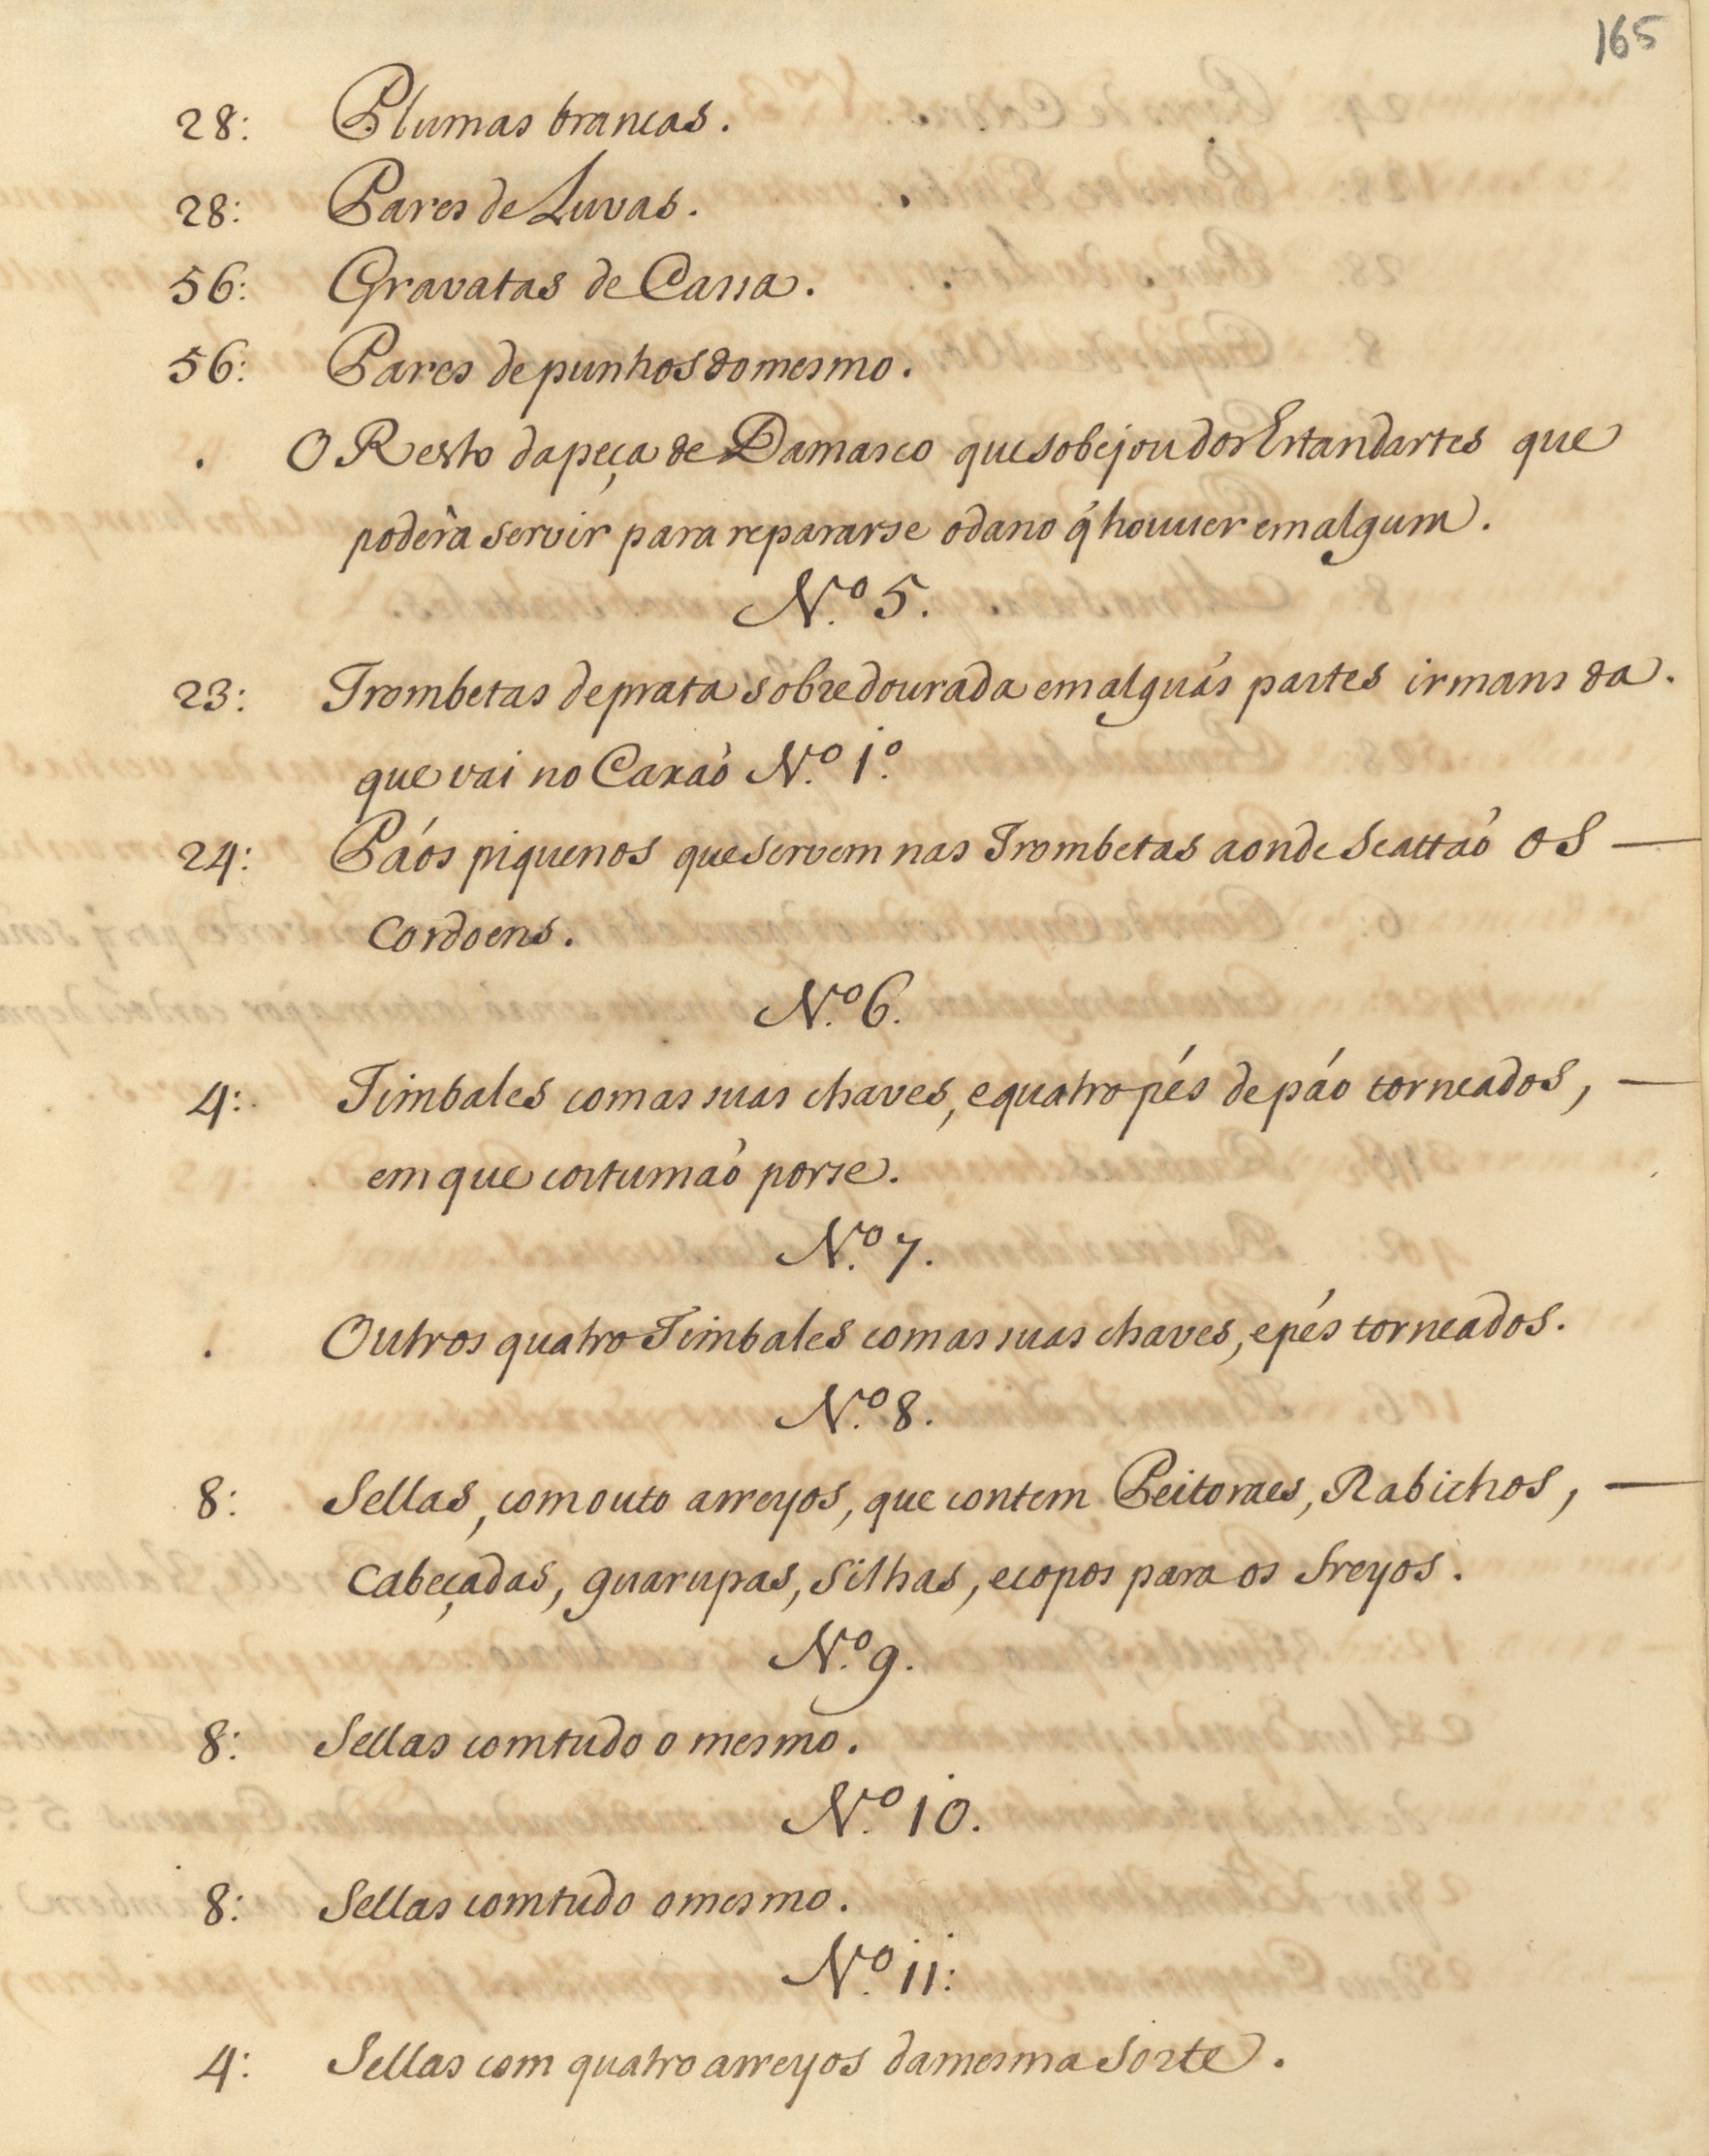 165
28: Plumas brancas.
28: Pares de Luvas.
56: Gravatas de Cassa.
56: Pares de punhos do mesmo.
O Resto da peça de Damasco que sobejou dos Estandartes que
poderâ servir para repararse o dano q̃ houver em algum.
N.º 5.
23: Trombetas de prata sobredourada em alguãs partes irmans da.
que vai no Caxaõ N.º 1º.
24: Páos piquenos que servem nas Trombetas aonde se attaõ os —
Cordoens.
N.º 6.
4: Timbales com as suas chaves, e quatro pés de páo torneados, —
em que costumaõ porse.
N.º 7.
Outros quatro Timbales com as suas chaves, e pés torneados.
N.º 8.
8: Sellas, com outo arreyos, que contem Peitoraes, Rabichos, —
Cabeçadas, guarupas, silhas, e copos para os freyos.
N.º 9.
8: Sellas com tudo o mesmo.
N.º 10.
8: Sellas com tudo o mesmo.
N.º 11:
4: Sellas com quatro arreyos da mesma sorte.